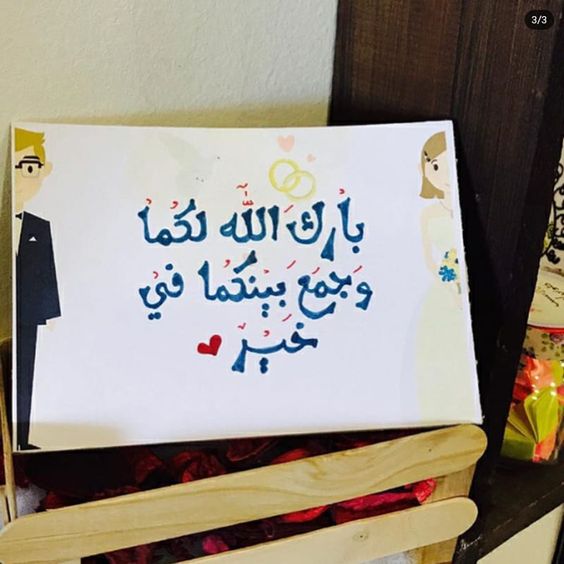 3/3
بَارَكَ اللَّه لَكُمَا
وَجَمَعَ بَيْنَكُمَا فيْ
خَيْرٍ